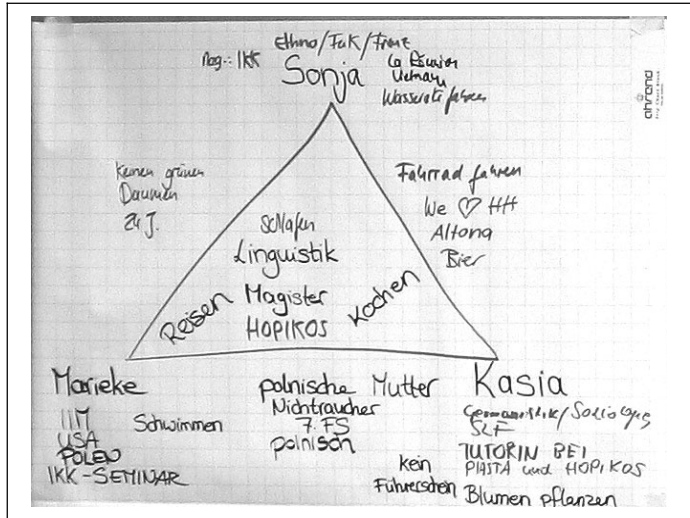 Ethno/FuK/Franz
Mag.: IKK
Sonja
La Réunion
Vietnam
Wasserski fahren
ahrend
Keinen grünen
Daumen
24 J.
Fahrrad fahren
We ♡ HH
Altona
Bier
Schlafen
Linguistik
Reisen
Magister
Kochen
HOPIKOS
Marieke
IIM
USA
POLEN
IKK-SEMINAR
Schwimmen
polnische Mutter
Nichtraucher
7. FS
polnisch
kein
Führerschein
Kasia
Germanistik/Soziologie
SLF
TUTORIN BEI
PIASTA und HOPIKOS
Blumen pflanzen